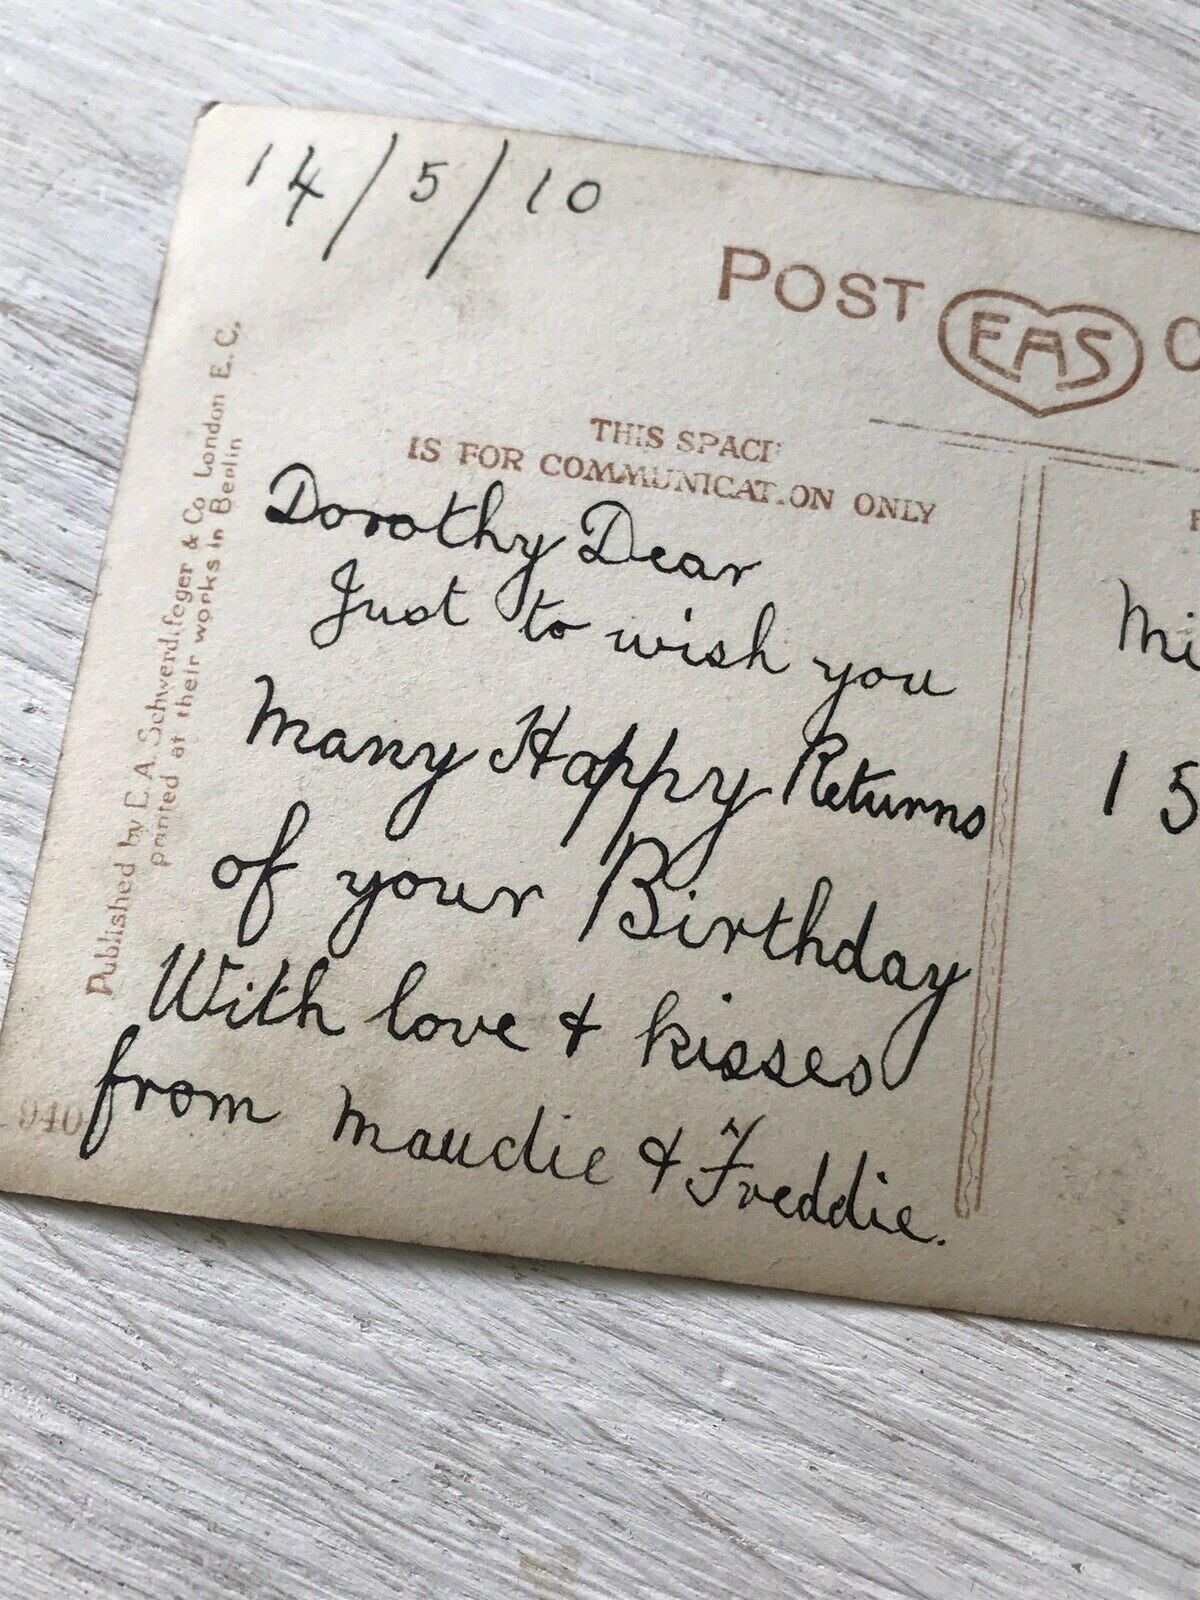 14/5/10
POST EAS C
THIS SPACE
IS FOR COMMUNICATION ONLY
Dorothy Dear
Just to wish you
Many Happy Returns
of your Birthday
With love & kisses
from Maudie & Freddie.
Published by E. A. Schwerdtfeger & Co London E. C.
printed at their works in Berlin
940
Mi
15